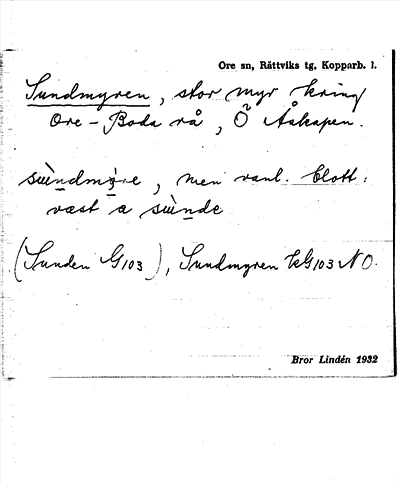 Ore sn, Rättviks tg, Kopparb. l.
Sundmyren, stor myr kring
Ore-Boda rå, Ö Åskapen.
men vanl. blott:
väst a
(Sunden G103), Sundmyren G103 NO.
Bror Lindén 1932